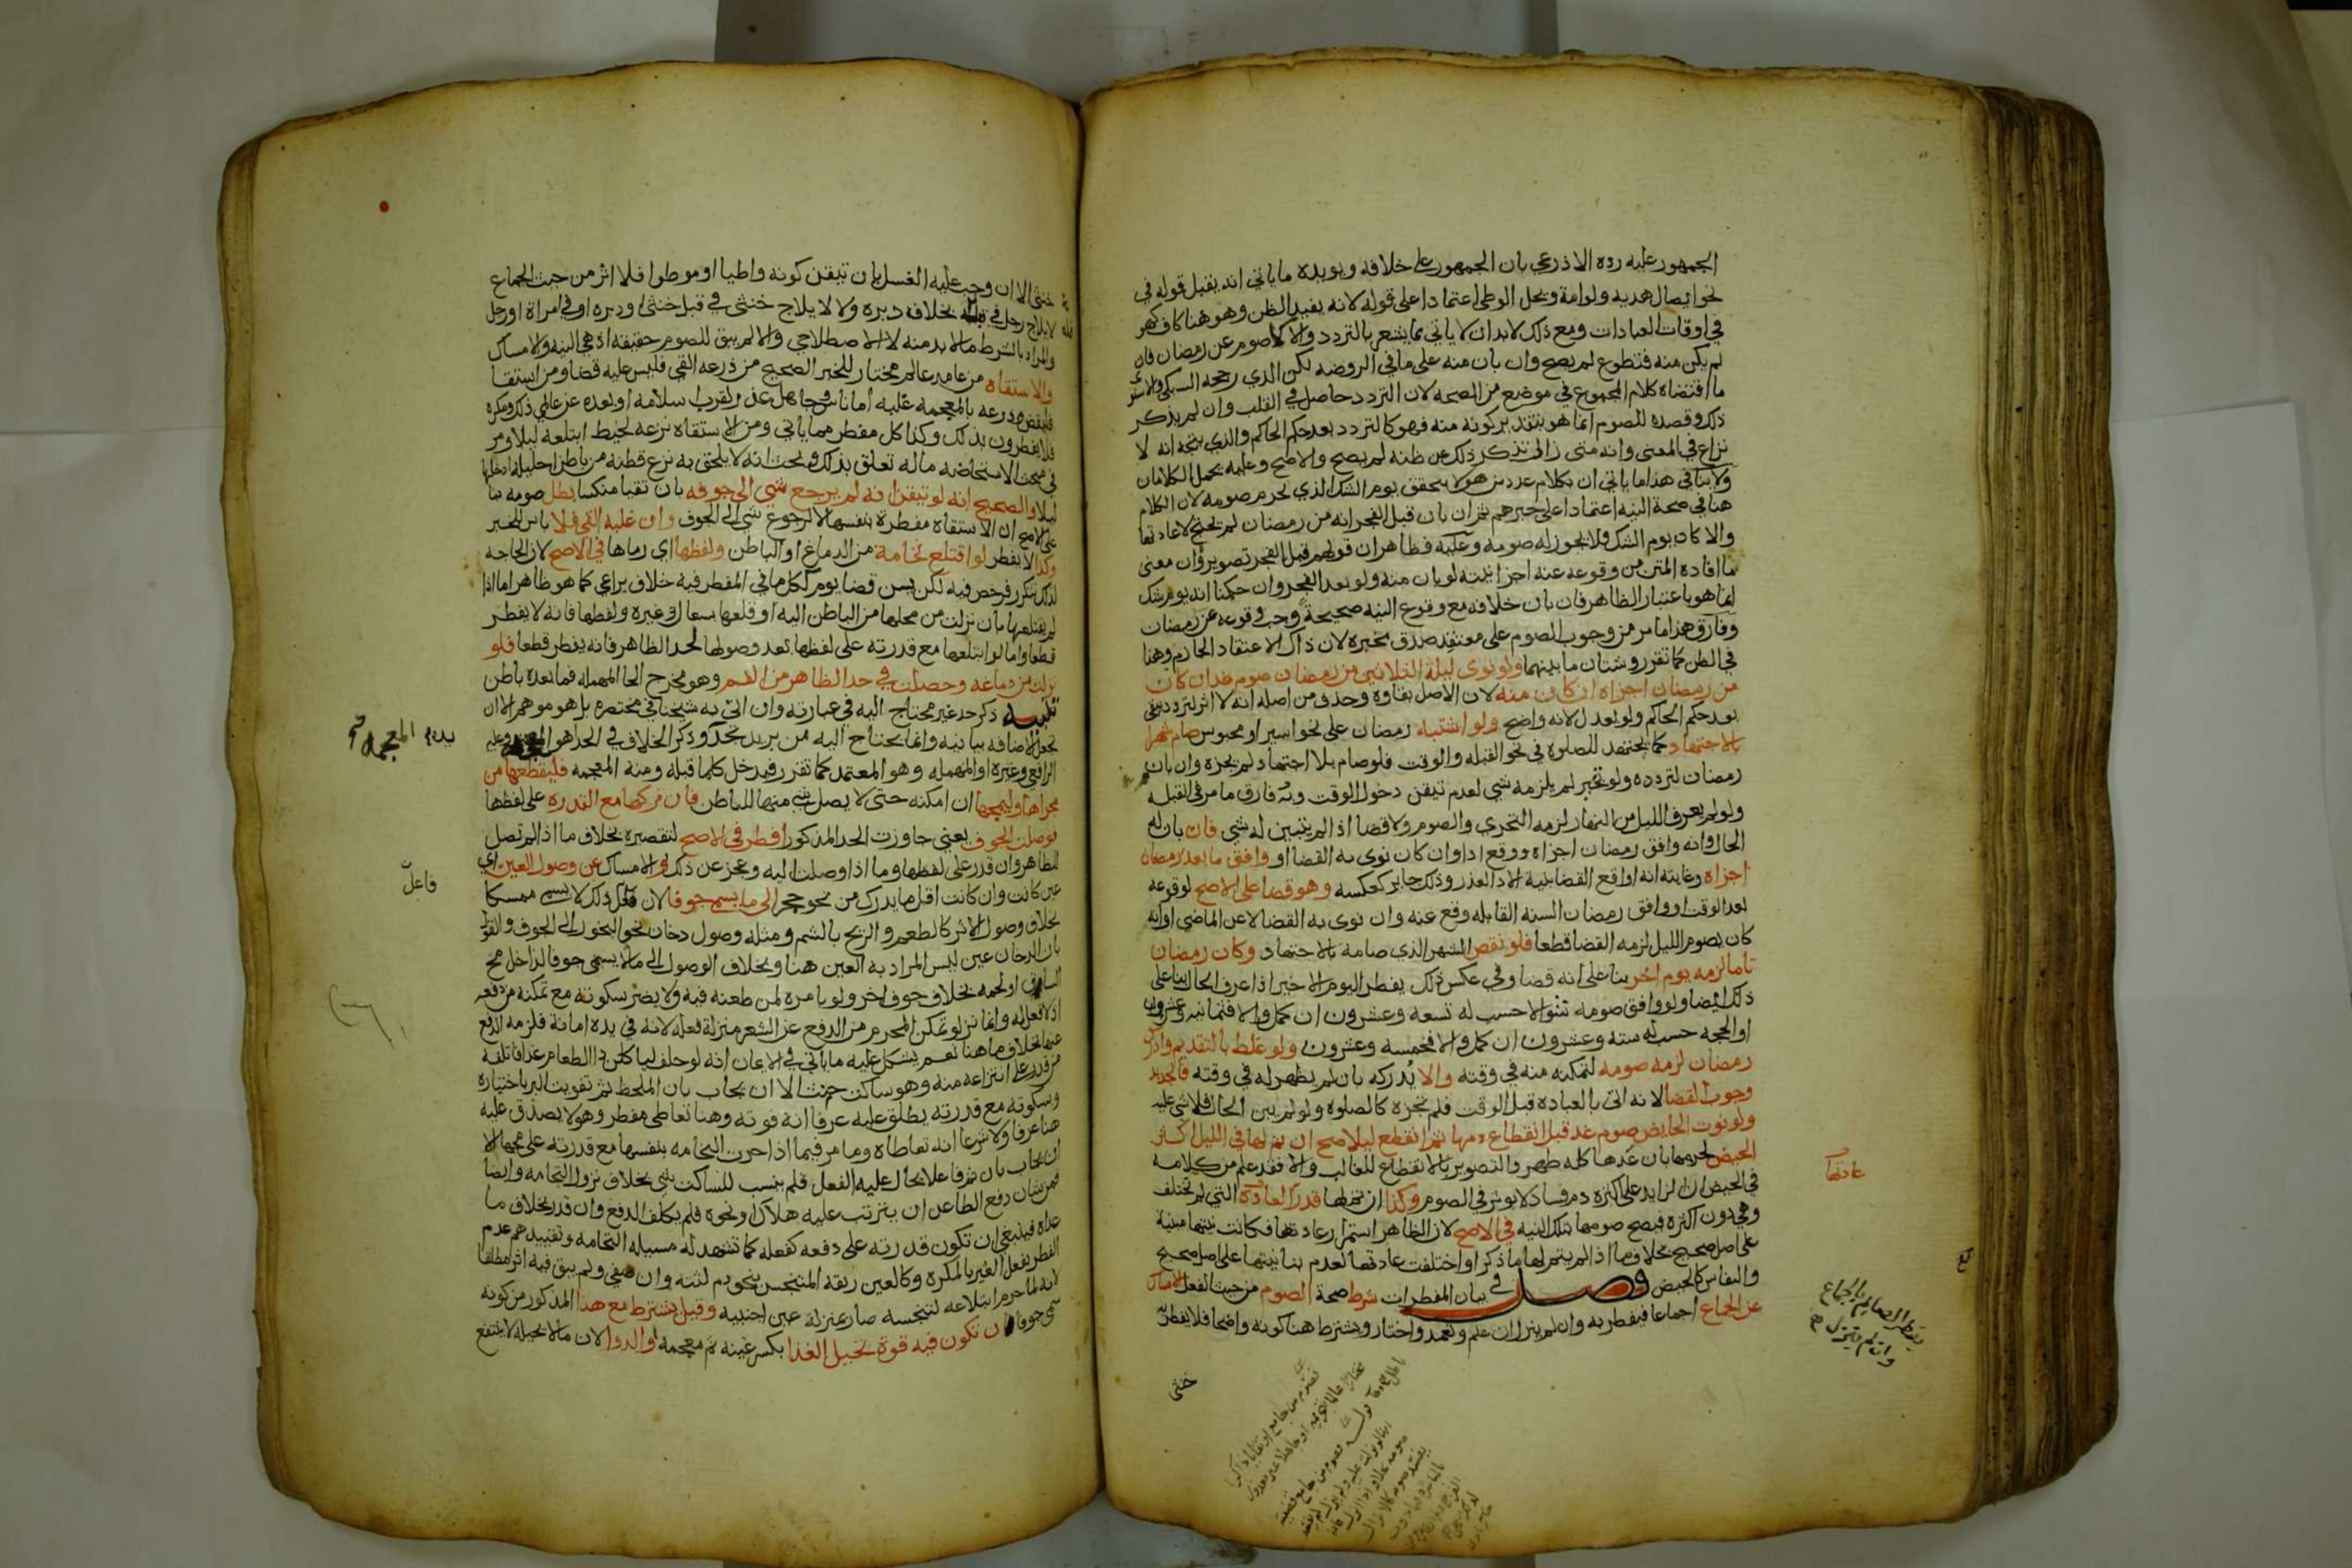 الجمهور عليه رده الاذرعي بان الجمهور على خلافه ويويده ما ياتي انه يقبل قوله في
نحو ايصال هديه ولوامة ويحل الوطى اعتمادا على قوله لانه يفيد الظن وهو هنا كاف كهو
في اوقات العبادات ومع ذلك لابد ان لا ياتي بما يشعر بالتردد والا كاصوم عن رمضان فان
لم يكن منه فتطوع لم يصح وان بان منه على ما في الروضه لكن الذي رجحه السبكي والاسنو
ما اقتضاه كلام المجموع في موضع من الصحه لان التردد حاصل في القلب وان لم يذكر
ذكره وقصده للصوم انما هو بتقدير كونه منه فهو كالتردد بعد حكم الحاكم والذي يتجه انه لا
نزاع في المعنى وانه متى زال بتذكر ذلك عن ظنه لم يصح والا صح وعليه يحمل الكلامان
ولا ينافي هذا ما ياتي ان بكلام عدد من هولا يتحقق يوم الشك الذي يحرم صومه لان الكلام
هنا في صحة النيه اعتمادا على خبرهم ثم ان بان قبل الفجر انه من رمضان لم يحتج لاعادتها
والا كان يوم الشك فلا يجوز له صومه وعليه فظاهر ان قولهم قبل الفجر تصوير وان معنى
ما افاده المتن من وقوعه عنه اجزا نيته لو بان منه ولو بعد الفجر وان حكمنا انه يوم شك
انما هو باعتبار الظاهر فان بان خلافه مع وقوع النيه صحيحة وجب وقوعه عن رمضان
وفارق هذا ما مر من وجوب الصوم على معتقد صدق مخبره لان ذاك الاعتقاد الجازم وهنا
في الظن كما تقرر وشتان ما بينهما ولو نوى ليلة الثلاثين من رمضان صوم غد ان كان
من رمضان اجزاه ان كان منه لان الاصل بقاوه وحذف من اصله انه لا اثر لتردد يبقى
بعد حكم الحاكم ولو بعدل لانه واضح ولو اشتباه رمضان على نحو اسير او محبوس صام شهرا
بالاجتهاد كما يجتهد للصلوة في نحو القبله والوقت فلو صام بلا اجتهاد لم يجزه وان بان
رمضان لتردده ولو تحير لم يلزمه شي لعدم تيقن دخول الوقت وبه فارق ما مر في القبله
ولو لم يعرف الليل من النهار لزمه التحري والصوم ولا قضا اذا لم يتبين له شي فان بان له
الحال وانه وافق رمضان اجزاه ووقع ادا وان كان نوى به القضا او وافق ما بعد رمضان
اجزاه وغايته انه اوقع القضا بنية الادا لعذر وذلك جايز كعكسه وهو قضا على الاصح لوقوعه
بعد الوقت او وافق رمضان السنه القابله وقع عنه وان نوى به القضا لا عن الماضي او انه
كان يصوم الليل لزمه القضا قطعا فلو نقص الشهر الذي صامه بالاجتهاد وكان رمضان
تاما لزمه يوم اخر بنا على انه قضا وفي عكس ذلك يفطر اليوم الاخير اذا عرف الحال بنا على
ذلك ايضا ولو وافق صومه شوالا حسب له تسعة وعشرون ان كمل والا فثمانيه وعشرون
او الحجه حسب له ستة وعشرون ان كمل والا فخمسه وعشرون ولو غلط بالتقديم وادرك
رمضان لزمه صومه لتمكنه منه في وقته والا يُدركه بان لم يظهر له في وقته فالجديد
وجوب القضا لانه اتى بالعباده قبل الوقت فلم تجزه كالصلوة ولو لم يبن الحال فلا شي عليه
ولو نوت الحايض صوم غد قبل انقطاع دمها ثم انقطع ليلا صح ان تم لها في الليل اكثر
الحيض لجزمها بان غدها كله طهر والتصوير بالانقطاع للغالب والا فقد علم من كلامه
في الحيض ان الزايد على اكثره دم فساد لا يوثر في الصوم وكذا ان تم لها قدر العادة التي لم تختلف
وهي دون اكثره فيصح صومها بتلك النيه في الاصح لان الظاهر استمرار عادتها فكانت نيتها مبنية
على اصل صحيح بخلاف ما اذا لم يتم لها ما ذكر او اختلفت عادتها لعدم بنا نيتها على اصل صحيح
والنفاس كالحيض فصل في بيان المفطرات شرط صحة الصوم من حيث الفعل الامساك
عن الجماع اجماعا فيفطر به وان لم ينزل ان علم وتعمد واختار ويشترط هنا كونه واضحا فلا يفطر به
خنثى
عادتها
يفطر الصايم بالجماع
وان لم ينزل صح
خنثى الا ان وجب عليه الغسل بان تيقن كونه واطيا او موطوا فلا اثر من حيث الجماع
لايلاج رجل في قبله بخلاف دبره ولا لايلاج خنثى في قبل خنثى او دبره او في امراة او رجل
والمراد بالشرط ما لا بد منه لا الاصطلاحي والا لم يبق للصوم حقيقه اذ هي النيه والامساك
والاستقاه من عامد عالم مختار للخبر الصحيح من ذرعه القي فليس عليه قضا ومن استقا
فليقض وذرعه بالمعجمه غلبه اما ناس وجاهل عذر لقرب اسلامه او بعده عن عالمي ذلك ومكره
فلا يفطرون بذلك وكذا كل مفطر مما ياتي ومن الاستقاه نزعه لخيط ابتلعه ليلا ومر
في مبحث الاستحاضه ما له تعلق بذلك وبحث انه لا يلحق به نزع قطنه من باطن احليله ادخلها
ليلا والصحيح انه لو تيقن انه لم يرجع شي الى جوفه بان تقيا منكسا بطل صومه بنا
على الاصح ان الاستقاه مفطرة بنفسها لا لرجوع شي الى الجوف وان غلبه القي فلا باس للخبر
وكذا لا يفطر لو اقتلع نخامة من الدماغ او الباطن ولفظها اي رماها في الاصح لان الحاجه
لذلك تتكرر فرخص فيه لكن يسن قضا يوم لكل ما في المفطر فيه خلاف يراعى كما هو ظاهر اما اذا
لم يقتلعها بان نزلت من محلها من الباطن اليه او قلعها بسعال او غيره ولفظها فانه لا يفطر
قطعا واما لو ابتلعها مع قدرته على لفظها بعد وصولها لحد الظاهر فانه يفطر قطعا فلو
نزلت من دماغه وحصلت في حد الظاهر من الفم وهو مخرج الحا المهمله فما بعده باطن
تنبيه ذكر حد غير محتاج اليه في عبارته وان اتى به شيخنا في مختصره بل هو موهم الا ان
تجعل الاضافه بيانيه وانما يحتاج اليه من يريد تحديده وذكر الخلاف في الحد اهو المعجمه وعليه
الرافعي وغيره او المهمله وهو المعتمد كما تقرر فيدخل كلما قبله ومنه المعجمه فليقطعها من
مجراها وليمجها ان امكنه حتى لا يصل شي منها للباطن فان تركها مع القدره على لفظها
فوصلت الجوف يعني جاوزت الحد المذكور افطر في الاصح لتقصيره بخلاف ما اذا لم تصل
للظاهر وان قدر على لفظها وما اذا وصلت اليه وعجز عن ذلك والامساك عن وصول العين اي
عين كانت وان كانت اقل ما يدرك من نحو حجر الى ما يسمى جوفا لان فاعل ذلك لا يسمى ممسكا
بخلاف وصول الاثر كالطعم والريح بالشم ومثله وصول دخان نحو البخور الى الجوف والقول
بان الدخان عين ليس المراد به العين هنا وبخلاف الوصول الى ما لا يسمى جوفا لداخل مخ
الساق او لحمه بخلاف جوف اخر ولو بامره لمن طعنه فيه ولا يضر سكوته مع تمكنه من دفعه
اذ لا فعل له وانما نزلوا تمكن المحرم من الدفع عن الشعر منزلة فعله لانه في يده امانة فلزمه الدفع
عنها بخلاف ما هنا نعم يشكل عليه ما ياتي في الايمان انه لو حلف لياكلن ذا الطعام غدا فاتلفه
من قدر على انتزاعه منه وهو ساكت حنث الا ان يجاب بان الملحظ ثم تفويت البر باختياره
وسكوته مع قدرته يطلق عليه عرفا انه فوته وهنا تعاطى مفطر وهو لا يصدق عليه
هنا عرفا ولا شرعا انه تعاطاه وما مر فيما اذا جرت النخامه بنفسها مع قدرته على مجها الا
ان يجاب بان ثم فاعلا يحال عليه الفعل فلم ينسب للساكت شي بخلاف نزول النخامه وايضا
فمن شان دفع الطاعن ان يترتب عليه هلاك او نحوه فلم يكلف الدفع وان قدر بخلاف ما
عداه فينبغي ان تكون قدرته على دفعه كفعله كما تشهد له مسيله النخامه وتقييدهم عدم
الفطر بفعل الغير بالمكره وكالعين ريقه المتنجس بنحو دم لثته وان صفى ولم يبق فيه اثر مطلقا
لانه لما حرم ابتلاعه لتنجسه صار بمنزلة عين اجنبيه وقيل يشترط مع هذا المذكور من كونه
سمى جوفا ان تكون فيه قوة تحيل الغذا بكسر غينه ثم معجمه او الدوا لان ما لا تحيله لا ينتفع
المعجمه
فاعل